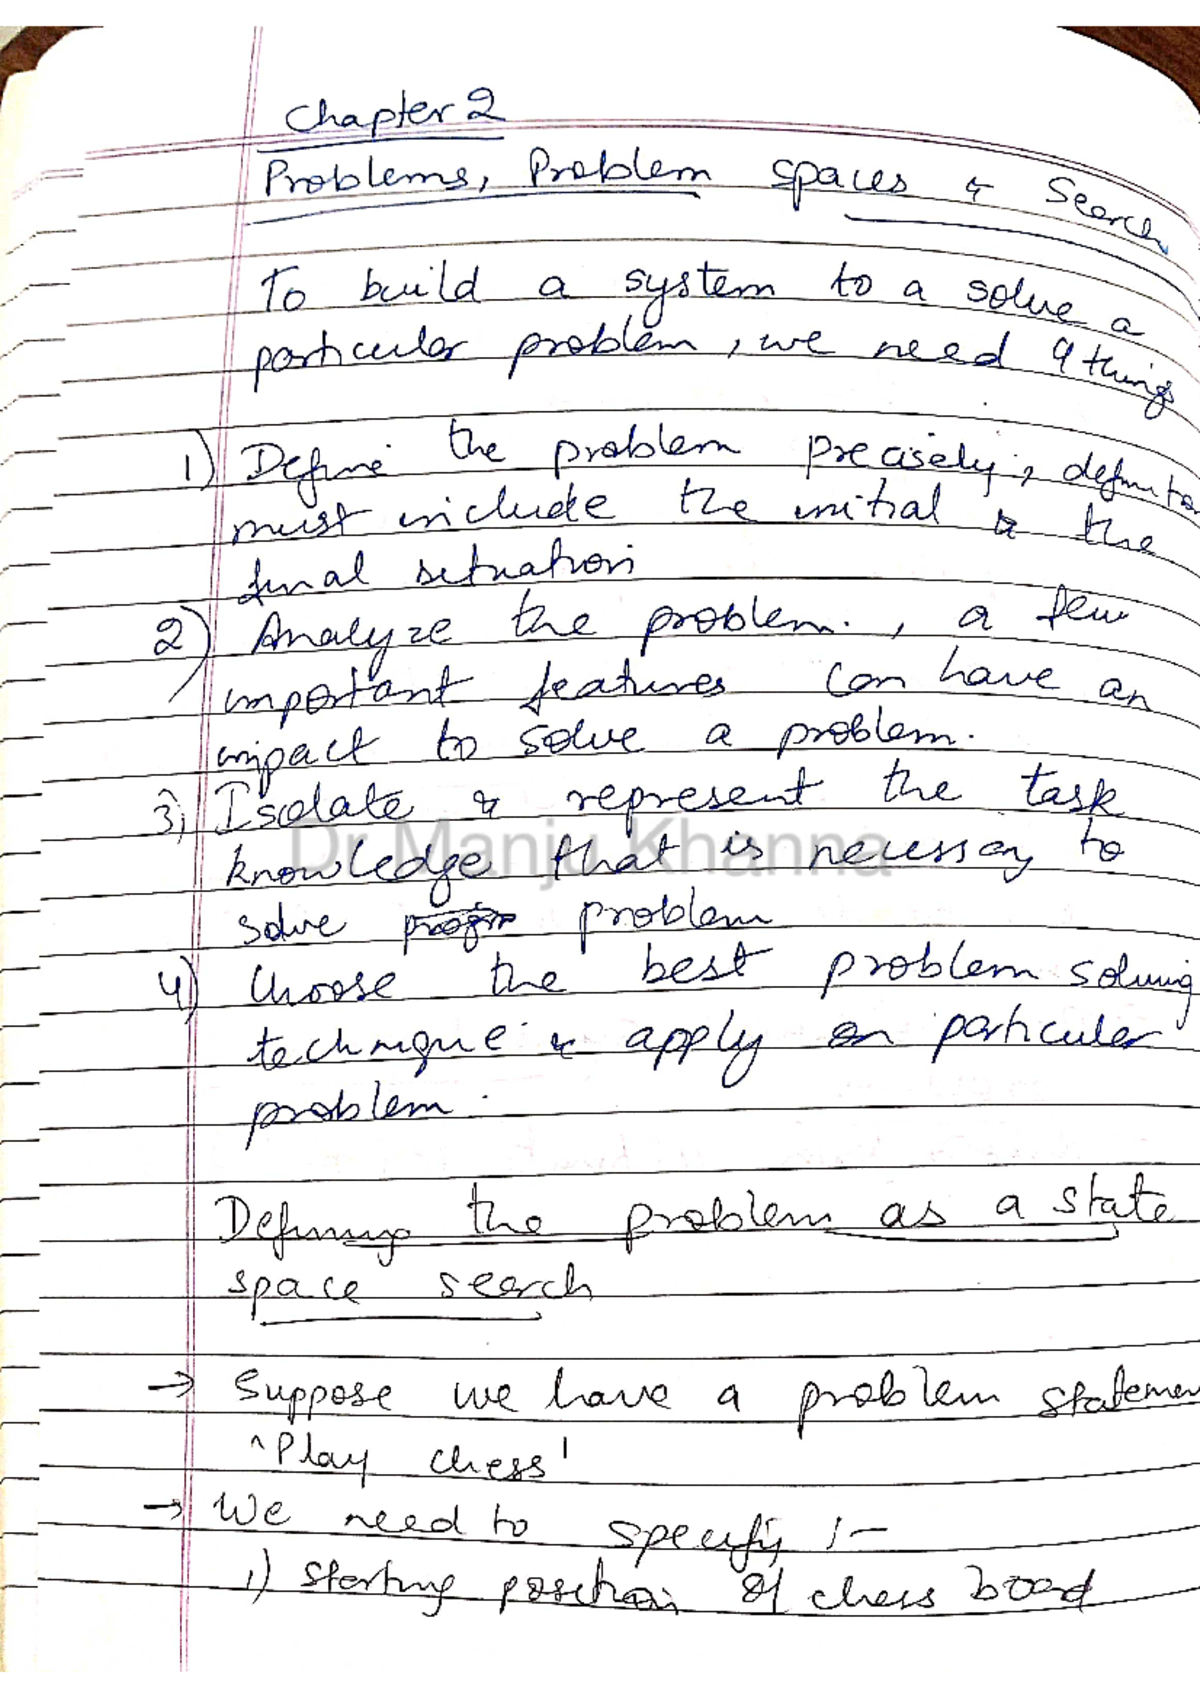 Chapter 2
Problems, Problem spaces & Search
To build a system to a solve a
particular problem, we need 4 things
1) Define the problem precisely, definition
must include the initial & the
final situation
2) Analyze the problem., a few
important features can have an
impact to solve a problem.
3) Isolate & represent the task
knowledge that is necessary to
Dr Manju Khanna
solve problem
4) Choose the best problem solving
technique & apply on particular
problem.
Defining the problem as a state
space search
→ Suppose we have a problem statemen
'Play chess'
→ We need to specify :-
1) Starting position of chess board